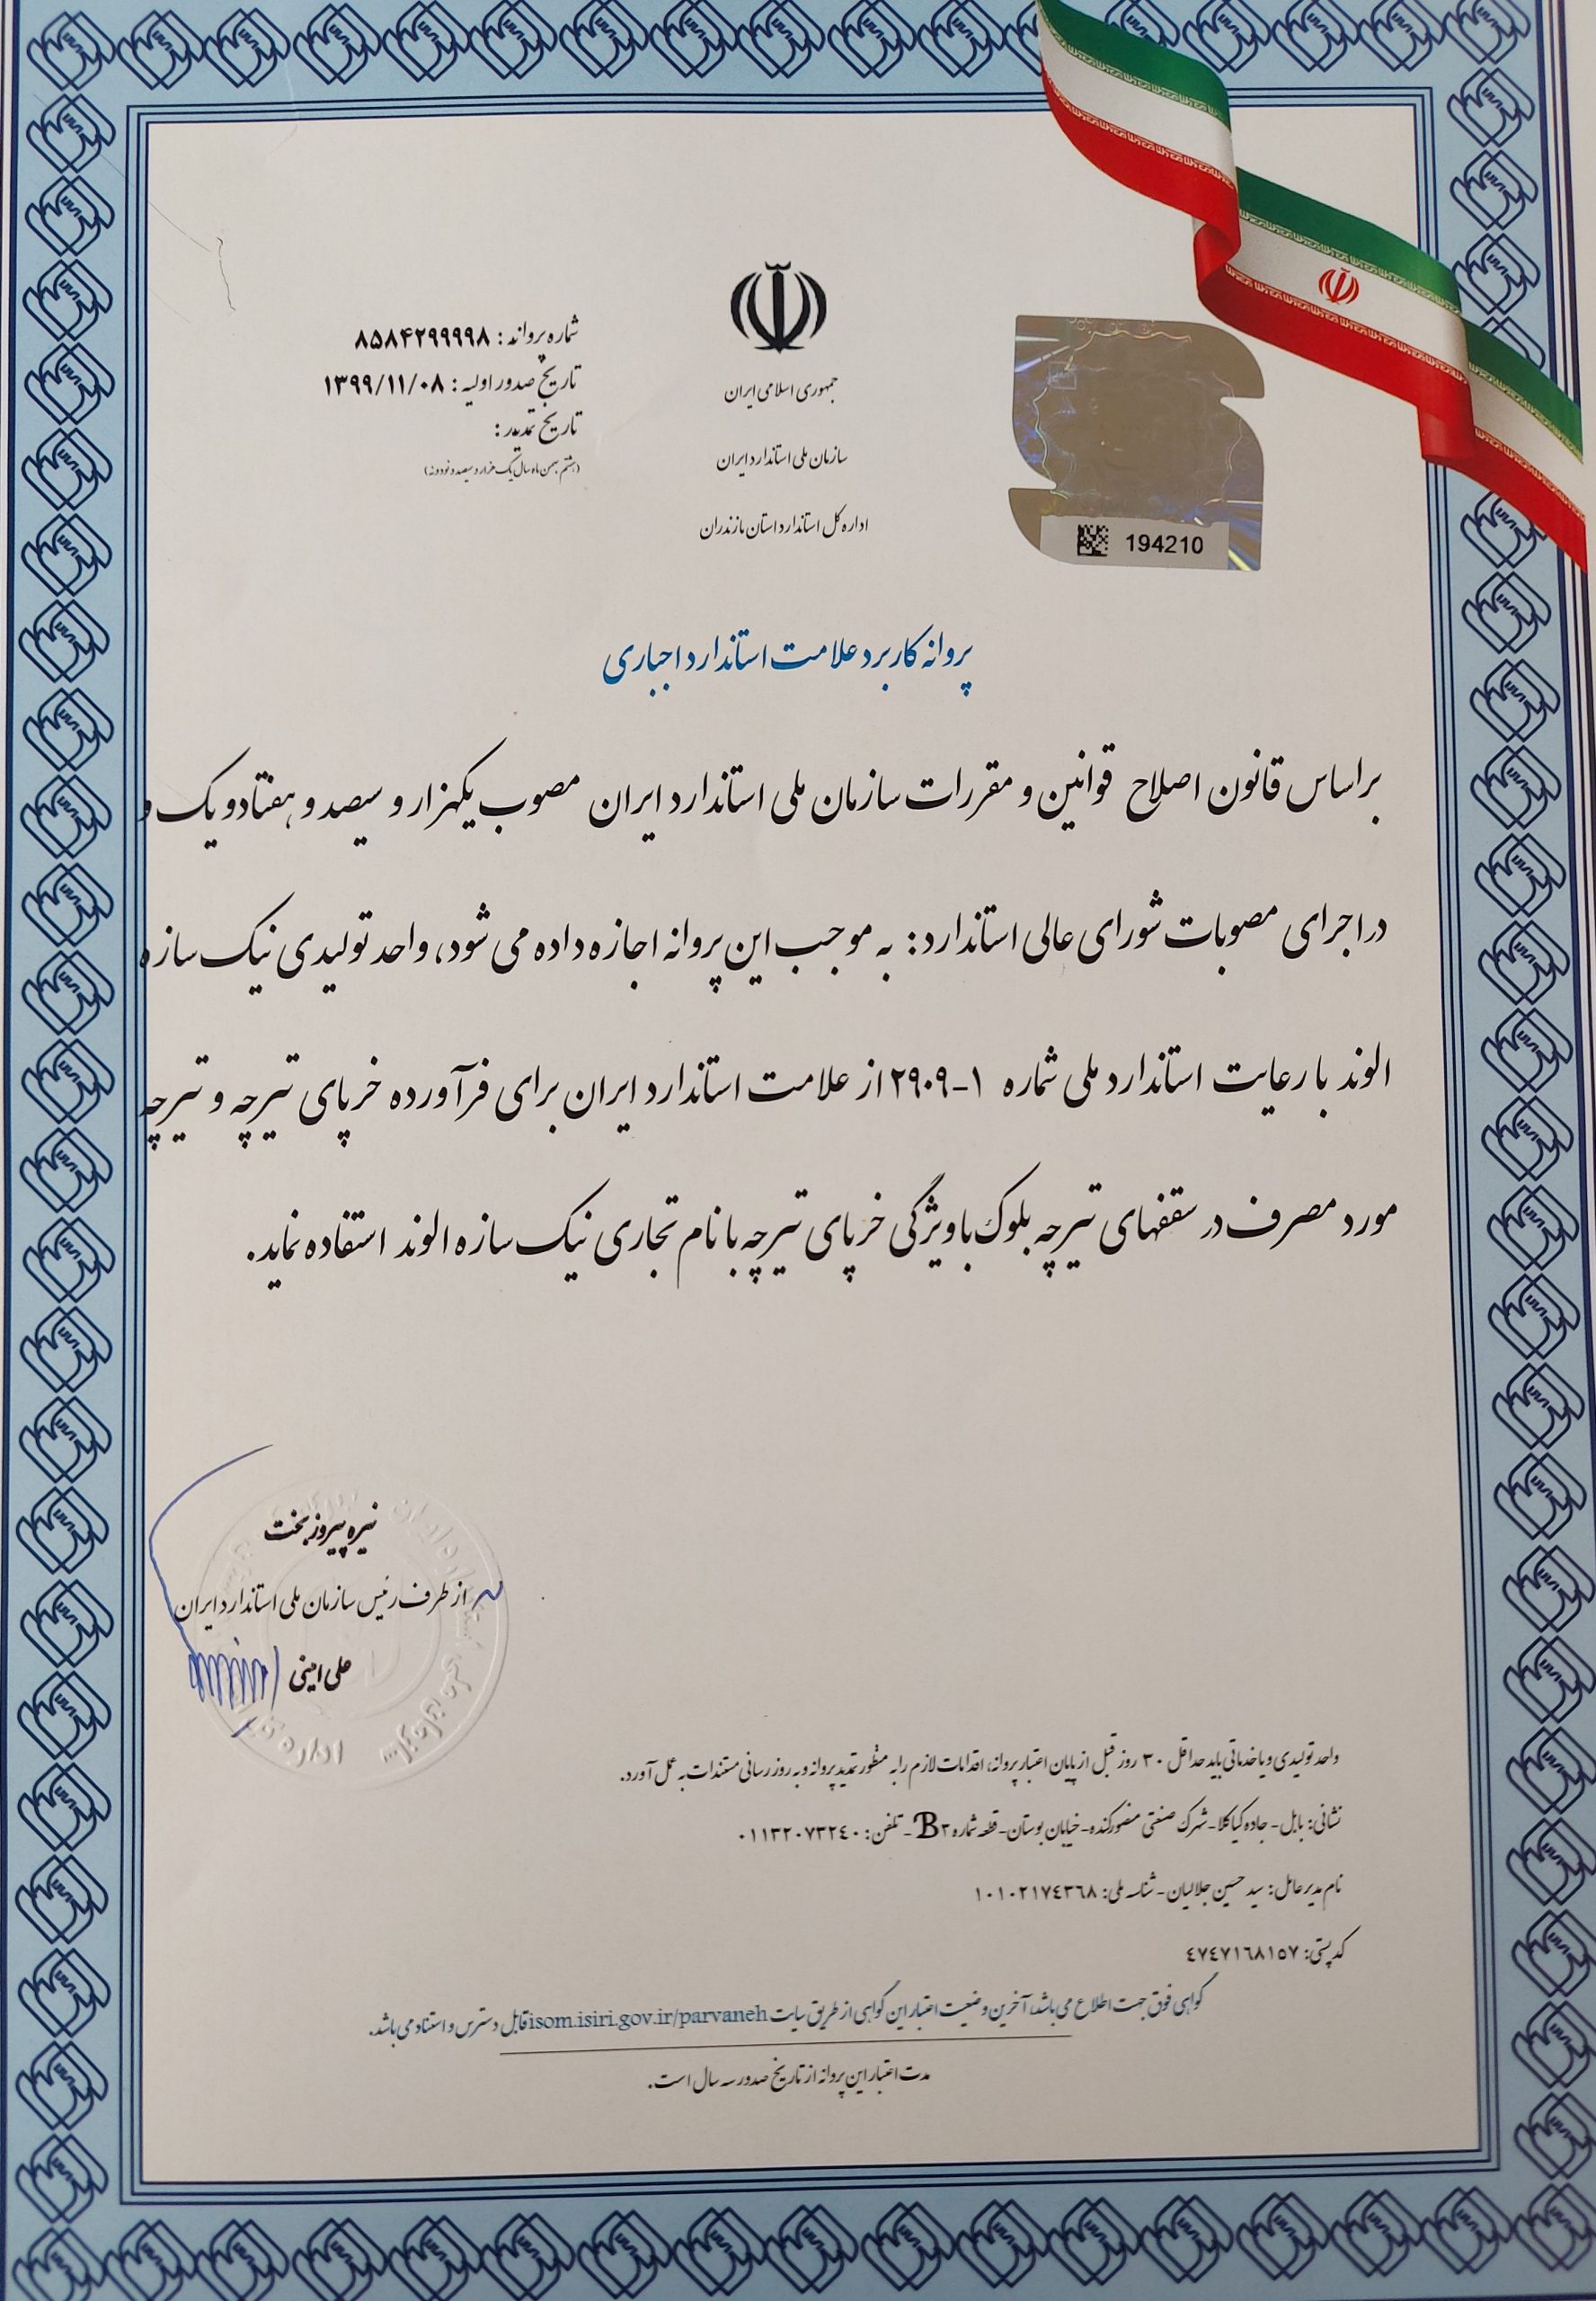 جمهوری اسلامی ایران
سازمان ملی استاندارد ایران
اداره کل استاندارد استان مازندران
شماره پروانه : ۸۵۸۴۲۹۹۹۹۸
تاریخ صدور اولیه : ۱۳۹۹/۱۱/۰۸
تاریخ تمدید :
(هشتم بهمن ماه سال یک هزار و سیصد و نود و نه)
194210
پروانه کاربرد علامت استاندارد اجباری
براساس قانون اصلاح قوانین و مقررات سازمان ملی استاندارد ایران مصوب یکهزار و سیصد و هفتاد و یک و
در اجرای مصوبات شورای عالی استاندارد: به موجب این پروانه اجازه داده می شود، واحد تولیدی نیک سازه
الوند با رعایت استاندارد ملی شماره ۱-۲۹۰۹ از علامت استاندارد ایران برای فرآورده خرپای تیرچه و تیرچه
مورد مصرف در سقفهای تیرچه بلوک با ویژگی خرپای تیرچه با نام تجاری نیک سازه الوند استفاده نماید.
نیره پیروزبخت
از طرف رئیس سازمان ملی استاندارد ایران
علی امینی
واحد تولیدی و یا خدماتی باید حداقل ۳۰ روز قبل از پایان اعتبار پروانه، اقدامات لازم را به منظور تمدید پروانه و به روز رسانی مستندات به عمل آورد.
نشانی: بابل - جاده کیاکلا - شهرک صنعتی منصورکنده - خیابان بوستان - قطعه شماره B۳ - تلفن: ۰۱۱۳۲۰۷۳۲٤۰
نام مدیر عامل: سید حسین جلالیان - شناسه ملی: ۱۰۱۰۲۱۷٤۳٦۸
کد پستی: ٤۷٤۷۱٦۸۱۵۷
گواهی فوق جهت اطلاع می باشد، آخرین وضعیت اعتبار این گواهی از طریق سایت isom.isiri.gov.ir/parvaneh قابل دسترس و استناد می باشد.
مدت اعتبار این پروانه از تاریخ صدور سه سال است.